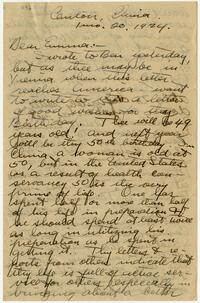 Canton, China
Nov. 20, 1924.
Dear Emma:—
I wrote to Ben yesterday,
but as thee may be in
Vienna when this letter
reaches America I want
to write to a letter
of good wishes for thy
birthday. Thee will be 49
years old, and next year
will be thy 50th birthday. In
China a woman is old at
50, but in the United States
as a result of health con-
servancy 50 is the very
prime of life.
spent half or more than half
of his life in preparation
he should spend at least twice
as long in utilizing his
preparation as he spent in
getting it. Thy letters & re-
ports from others indicate that
thy life is full of active ser-
vice for others especially in
bringing about a better